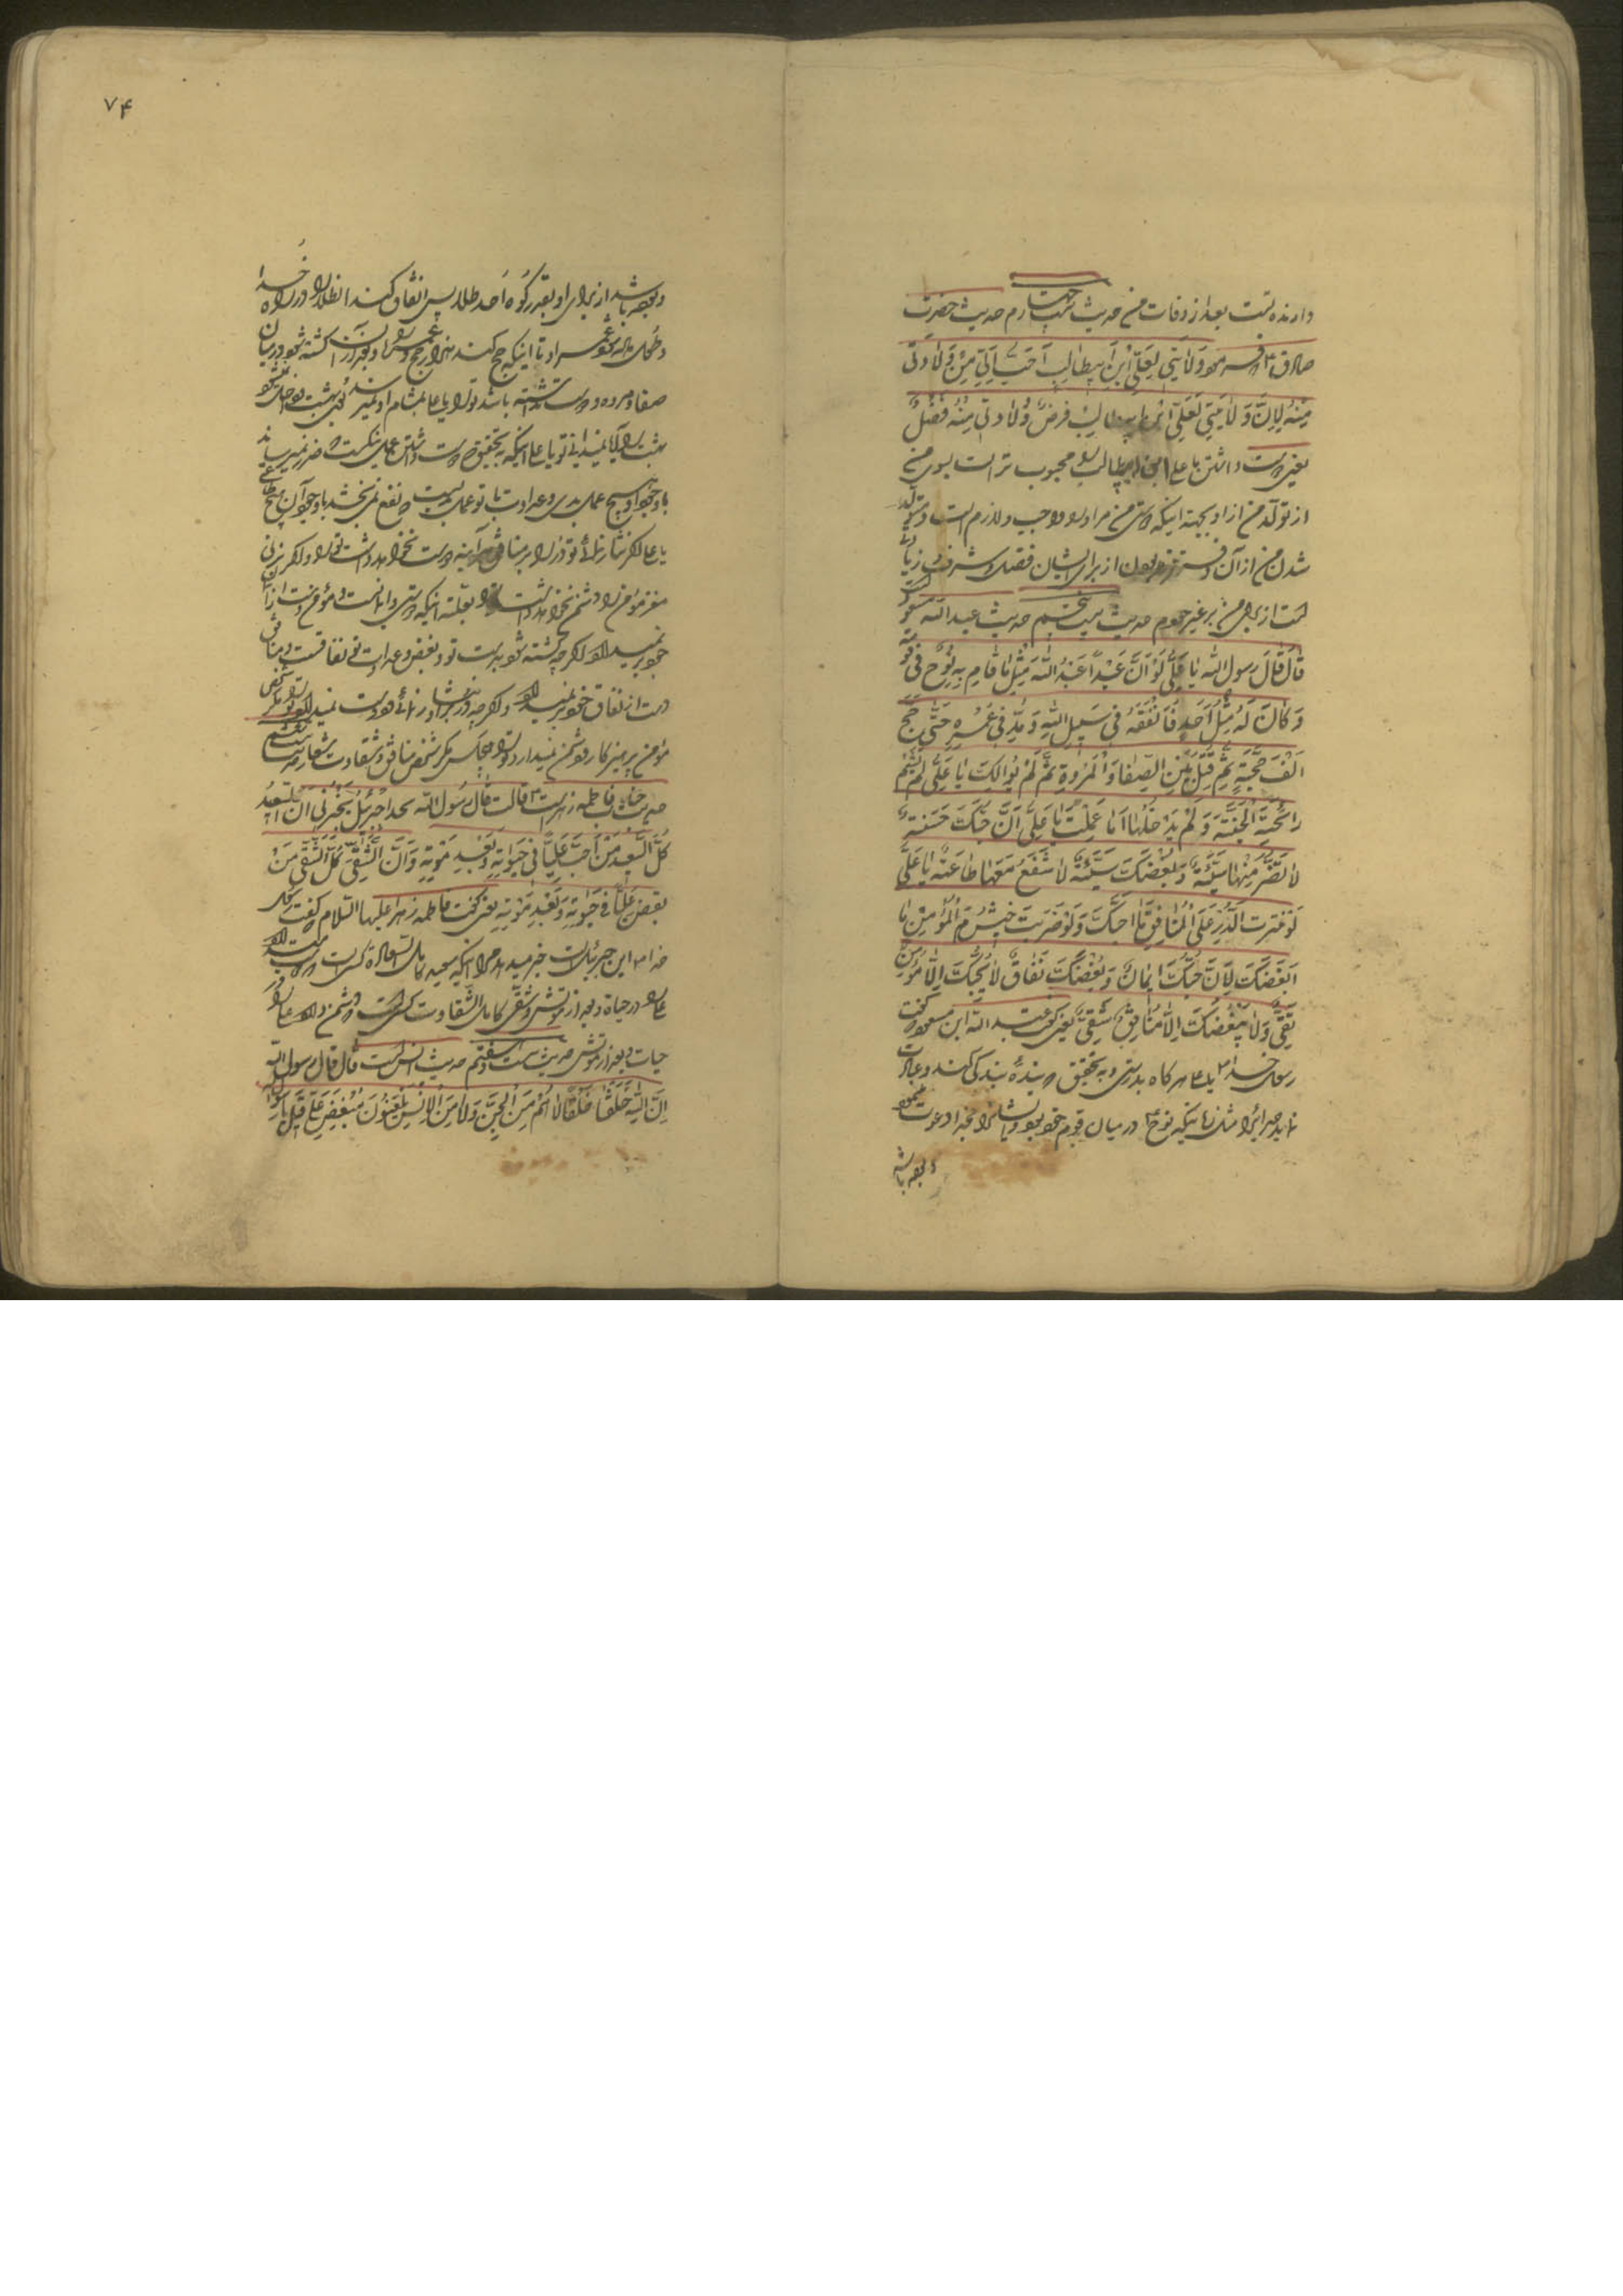 دارنده تست بعد از وفات من حدیث بیست چهارم حدیث حضرت
صادق فرمود وَلَایَتِی لِعَلِیِّ ابْنِ اَبِیطَالِبٍ اَحَبُّ اِلَیَّ مِنْ وَلَادَتِی
مِنْهُ لِاَنَّ وَلَایَتِی لَعَلِیِّ ابْنِ ابیطالِبْ فرضٌ وَلَادتی مِنْهُ فَضْلٌ
یعنی دوست داشتن با علی ابن ابیطالب محبوب تر است بسوی من
از تولّد من از او بجهة اینکه دوستی من مر او را واجب و لازم است و متولّد
شدن من از آن از برای ایشان فضل و شرف و زیادتی
است از برای من بر غیر خودم حدیث بیست پنجم حدیث عبد الله مسعود
قَالَ قَالَ رسول الله یَا عَلِیُّ لَوْ اَنَّ عَبْداً عَبَدَ اللّٰهَ مِثْلَ مَا قَامَ بِهِ نُوحٌ فِی قَوْمِهِ
وَ کَانَ لَهُ مِثْلُ اُحُدٍ فَاَنْفَقَهُ فِی سَبِیلِ اللّٰهِ وَ مُدَّ فِی عُمْرِهِ حَتّٰی حَجَّ
اَلْفَ حَجَّةٍ ثُمَّ قُتِلَ بَیْنَ الصَّفَا وَ الْمَرْوَةِ ثُمَّ لَمْ یُوَالِکَ یَا عَلِیُّ لَمْ یَشَمَّ
رَائِحَةَ الْجَنَّةِ وَ لَمْ یَدْخُلْهَا اَمَا عَلِمْتَ یَا عَلِیُّ اَنَّ حُبَّکَ حَسَنَةٌ
لَا تَضُرُّ مِنْهَا سَیِّئَةٌ وَ بُغْضَکَ سَیِّئَةٌ لَا تَنْفَعُ مَعَهَا طَاعَةٌ یَا عَلِیُّ
لَوْ نَثَرْتَ الدُّرَّ عَلَی الْمُنَافِقِ مَا اَحَبَّکَ وَ لَوْ ضَرَبْتَ خَیْشُومَ الْمُؤْمِنِ مَا
اَبْغَضَکَ لِاَنَّ حُبَّکَ اِیمَانٌ وَ بُغْضَکَ نِفَاقٌ لَا یُحِبُّکَ اِلَّا مُؤْمِنٌ
تَقِیٌّ وَ لَا یُبْغِضُکَ اِلَّا مُنَافِقٌ شَقِیٌّ یعنی عبد الله ابن مسعود گفت
رسول خدا یا علی هر کاه بدرستی و به تحقیق بندهٔ بندکی کند و عبادت
نماید خدا را مثل مانیکه نوح در میان قوم خود بود و ایشانرا بخدا دعوت مینمود
و بوده باشد
۷۴
و بوده باشد از برای او بقدر کوه اُحد طلا پس انفاق کند ان طلا را در راه خدا
و طول داده شود عمر او تا اینکه حج کند هزار حج و بعد از آن کشته شود در میان
صفا و مروه و دوست نداشته باشد تو را یا علی بمشام او نمیرسد بوی بهشت و داخل نمیشود
بهشت را آیا نمیدانی تو یا علی اینکه به تحقیق دوست داشتن عمل نیکیست ضرر نمیرساند
با وجود او هیچ عمل بدی و عداوت با تو عمل بدیست نفع نمی بخشد با وجود آن هیچ طاعتی
یا علی اکر نثار نمائی تو دُر را بر منافق هر آینه دوست نخواهد داشت تو را و اکر بزنی
مغز مؤمن را دشمن نخواهد داشت تو را بعلة اینکه دوستی تو ایمانست و مؤمن دست از ایمان
خود بر نمیدارد اکر چه کشته شود بدست تو و بغض و عداوت تو نفاقست و منافق
دست از نفاق خود بر نمیدارد و اکر چه زر نثار او نمائی دوست نمیدارد تو را مکر شخص
مؤمن پرهیزکار و دشمن نمیدارد تو را هیچکس مکر شخص منافق و شقاوت شعار حدیث بیست ششم
حدیث جناب فاطمه زهراست قالت قال رسُول الله هذا جبرئیلُ یُخْبِرُنِی اَنَّ السَّعِیدَ
کُلَّ السَّعِیدِ مَنْ اَحَبَّ عَلِیًّا فِی حَیٰوتِهِ وَ بَعْدَ مَوْتِهِ وَ اَنَّ الشَّقِیَّ کُلَّ الشَّقِیِّ مَنْ
بغض عَلِیًّا فِی حَیٰوتِهِ وَ بَعْدَ مَوْتِهِ یعنی کفت فاطمه زهرا علیها السلام کفت رسول
خدا این جبرئیل است خبر میدهد مرا اینکه سعید کامل السعادة کسی است که دوست دارد
علی را در حیاة و بعد از موتش و شقی کامل الشقاوت کسی است دشمن دارد علی را در
حیات و بعد از موتش حدیث بیست و هفتم حدیث انس است قال قال رسول الله
اِنَّ لِلّٰهِ خَلْقًا خَلَقًا لَا هُمْ مِنَ الْجِنِّ وَ لَا مِنَ الْاِنْسِ یَلْعَنُونَ مُبْغِضِی عَلِیٍّ قِیلَ یا رسول الله